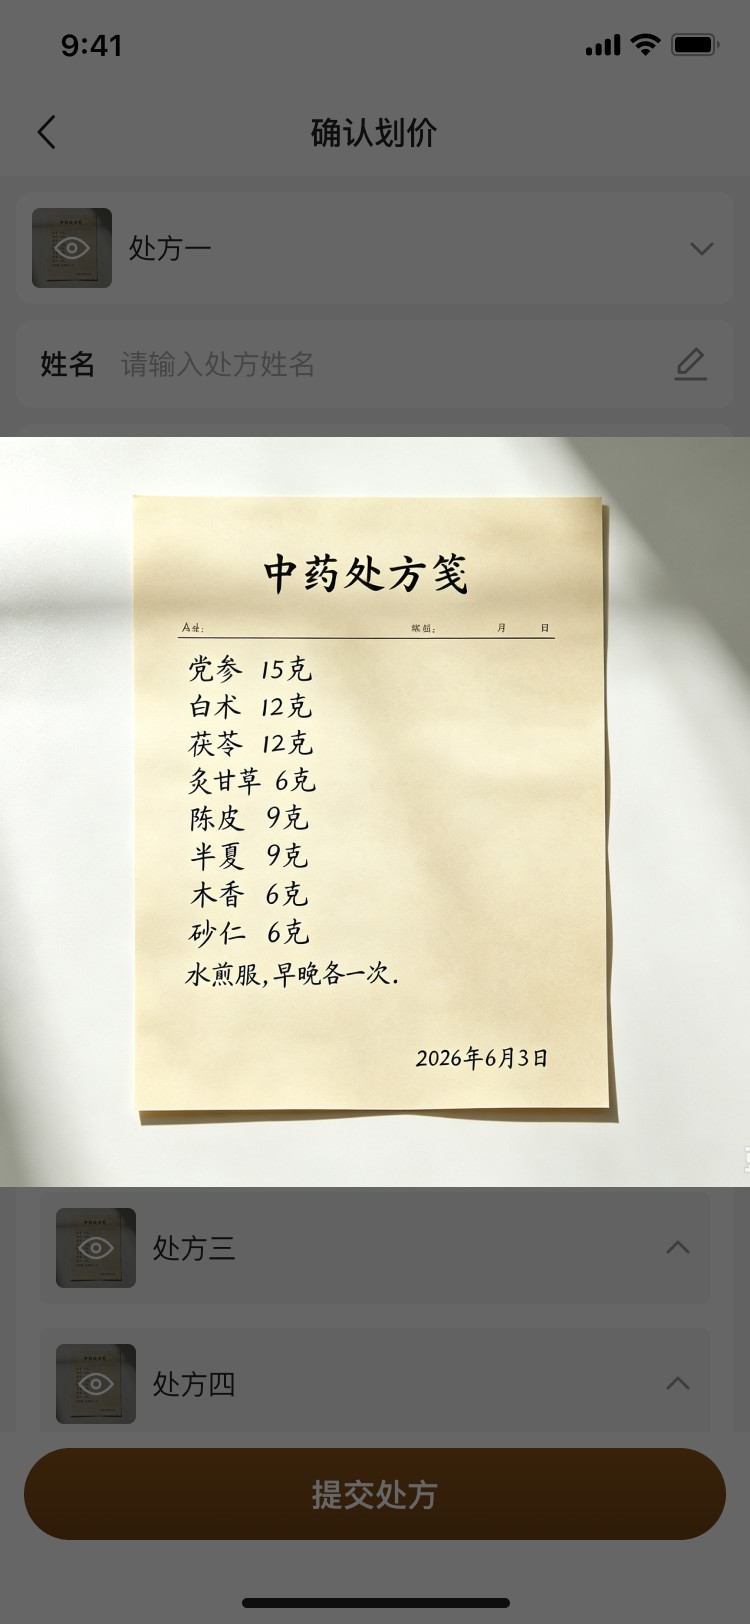 9:41
确认划价
处方一
姓名 请输入处方姓名
中药处方笺
月 日
党参 15克
白术 12克
茯苓 12克
炙甘草 6克
陈皮 9克
半夏 9克
木香 6克
砂仁 6克
水煎服,早晚各一次.
2026年6月3日
处方三
处方四
提交处方